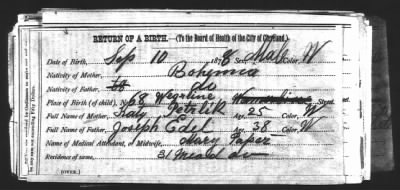 RETURN OF A BIRTH.—(To the Board of Health of the City of Cleveland.)
Date of Birth, Sep 10 1878 Sex, Male Color, W
Nativity of Mother, Bohemia
Nativity of Father, do
Place of Birth (of child), No. 68 Street.
Full Name of Mother, Mary Petrlik Age, 25 Color, W
Full Name of Father, Joseph Edel Age, 38 Color, W
Name of Medical Attendant, or Midwife, Mary Paper
Residence of same, 31
(OVER.)